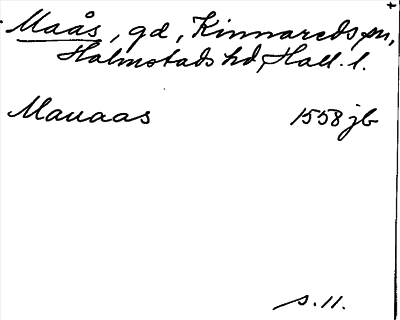 Maås, gd, Kinnareds sn,
Halmstads hd, Hall. l.
Mauaas 1558 jb
s. 11.